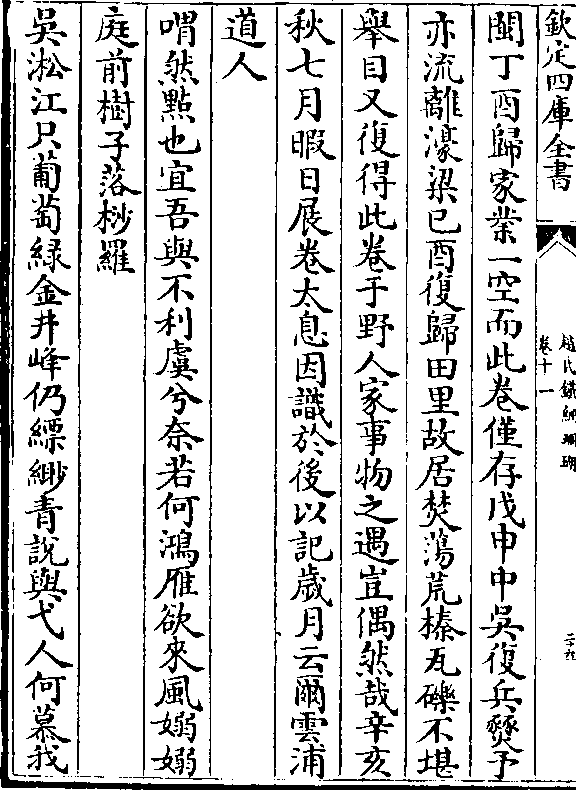 欽定四庫全書
趙氏鐵網珊瑚
卷十一
二十九
閩丁酉歸家業一空而此卷僅存戊申中吳復兵燹予
亦流離濠梁已酉復歸田里故居焚蕩荒榛瓦礫不堪
舉目又復得此卷于野人家事物之遇豈偶然哉辛亥
秋七月暇日展卷太息因識於後以記歳月云爾雲浦
道人
喟然㸃也宜吾與不利虞兮奈若何鴻雁欲來風嫋嫋
庭前樹子落桫羅
吳淞江只葡萄緑金井峰仍縹緲青說與弋人何慕我